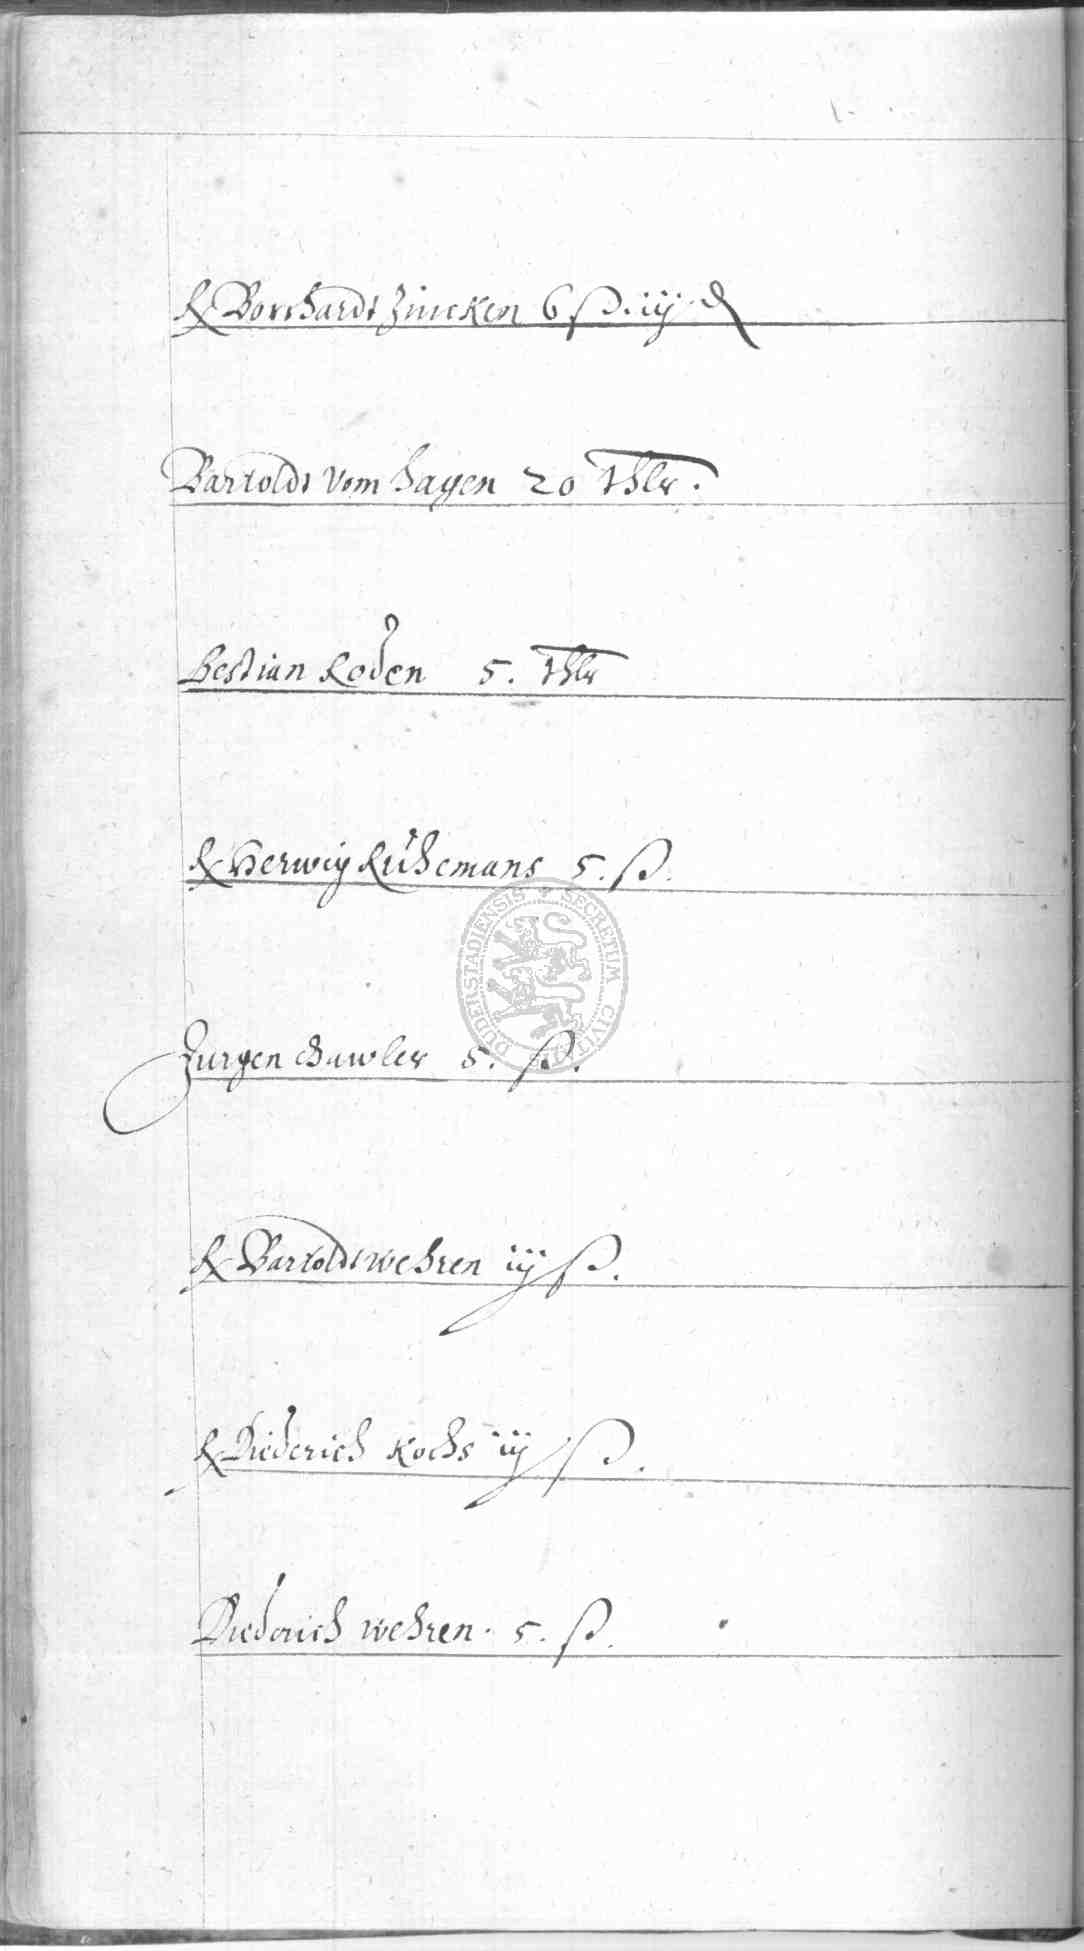 R Borchardt Zincken 6 ß. iij ₰
Bartoldt vom Hagen 20 thlr.
Bestian Roden 5. thlr
R Herwig Rühemans 5. ß.
SECRETUM CIVITATIS DUDERSTADIENSIS
Jurgen 5. ß.
R Bartoldt Wehren iij ß.
R Diederich Kochs iij ß.
Diederich Wehren. 5. ß.